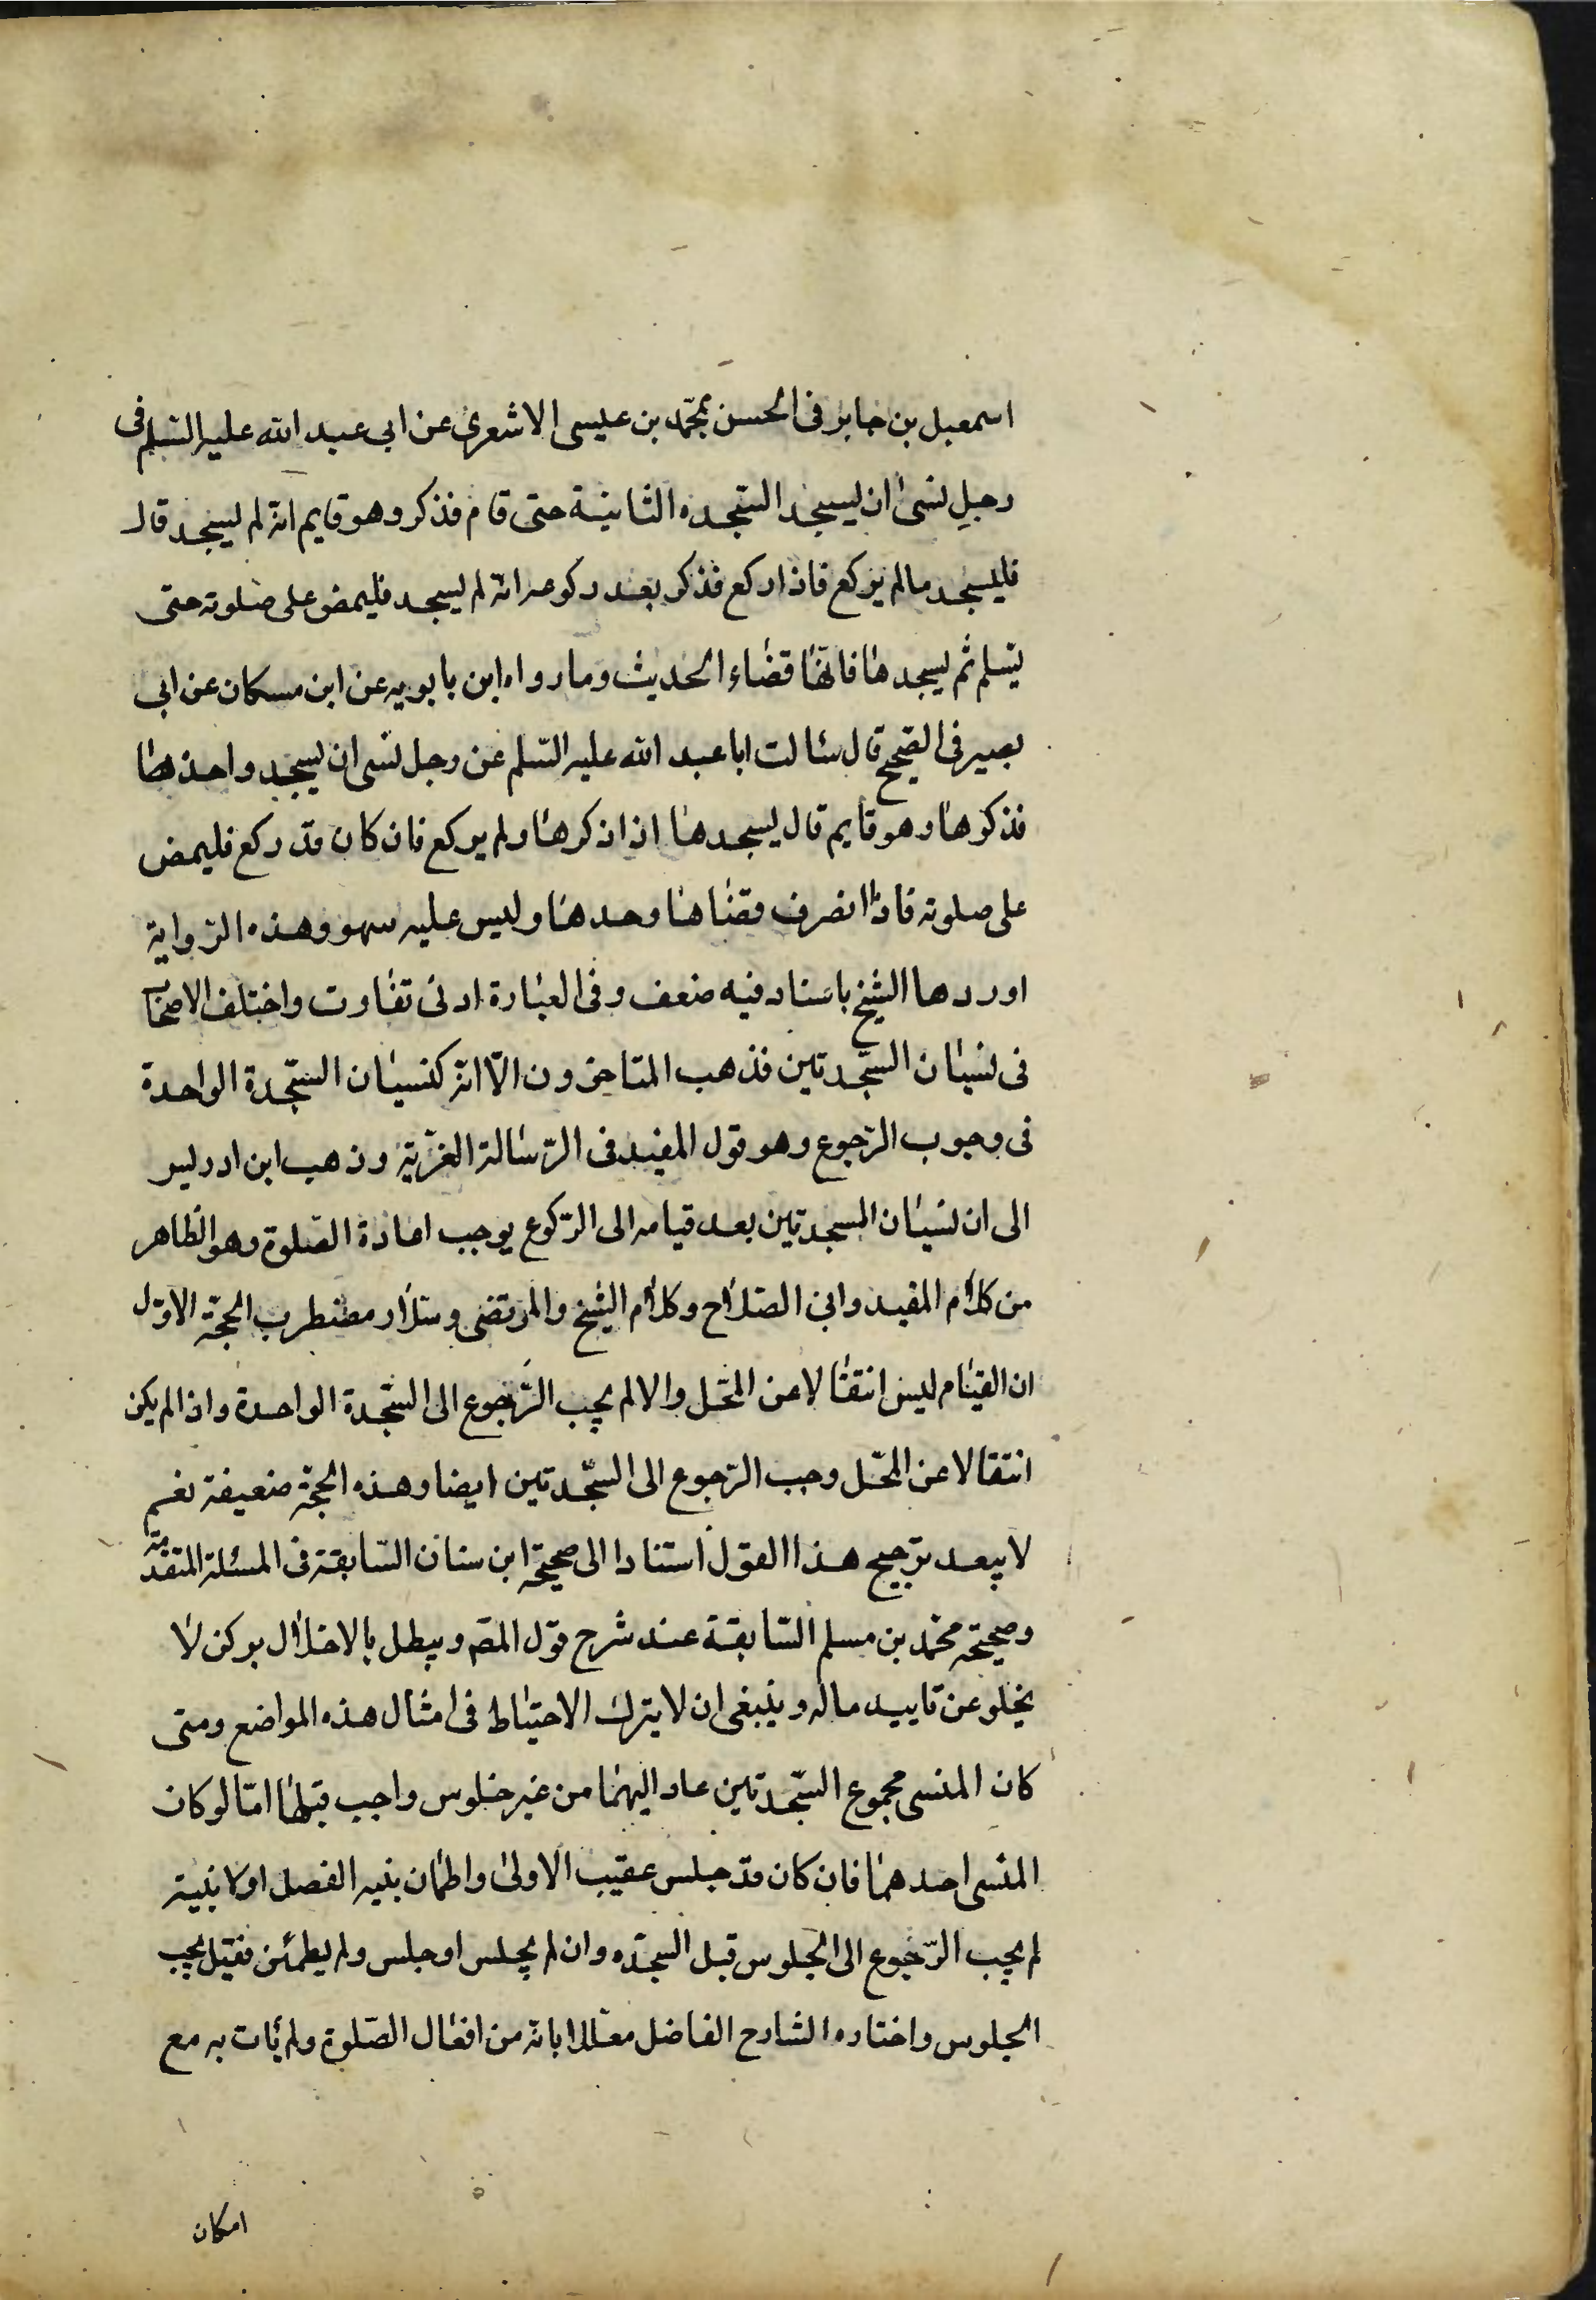 اسمعيل بن جابر فى الحسن بمحمّد بن عليسى الاشعرى عن ابى عبد الله عليه السّلم فى
رجلٍ نسىٰ ان يسجد السّجده الثانيّة حتى قام فذكر وهو قايم انّه لم يسجد قال
فليسجد مالم يركع فاذا ركع فذكر بعد ركوعه انّه لم يسجد فليمض على صلوته حتى
يسّلم ثم يسجدها فانّها قضاء الحديث وما رواه ابن بابويه عن ابن مسكان عن ابى
بصير فى الصّحيح قال سالت ابا عبد الله عليه السّلم عن رجل نسى ان يسجد واحدة
فذكرها وهو قايم قال يسجدها اذا ذكرها ولم يركع فان كان قد ركع فليمض
على صلوته فاذا انصرف قضاها وحدها وليس عليه سهو وهذه الرّواية
اوردها الشيخ باسناد فيه ضعف وفى العبارة ادنى تفاوت واختلف الاصحاب
فى نسيان السّجدتين فذهب المتاخرون الّا انّه كنسيان السّجدة الواحدة
فى وجوب الرّجوع وهو قول المفيد فى الرّسالة الغرّية وذهب ابن ادريس
الى ان نسيان السجدتين بعد قيامه الى الرّكوع يوجب اعادة الصّلوة وهو الظاهر
من كلام المفيد وابى الصّلاح وكلام الشيخ والمرتضى وسلّار مضطرب الحجّة الاوّل
ان القيام ليس انتقالا عن المحّل والا لم يجب الرّجوع الى السّجدة الواحدة واذا لم يكن
انتقالا عن المحّل وجب الرّجوع الى السّجدتين ايضا وهذه الحجّة ضعيفة نعم
لا يبعد ترجيح هذا القول استنادا الى صحيحة ابن سنان السّابقة فى المسئلة المتقدّمة
وصحيحة محمّد بن مسلم السّابقة عند شرح قول المصّ ويبطل بالاخلال بركن لا
يخلو عن تاييد ماله وينبغى ان لا يترك الاحتياط فى امثال هذه المواضع ومتى
كان المنسى مجموع السّجدتين عاد اليهما من غير جلوس واجب قبلهما امّا لو كان
المنسى احدهما فان كان قد جلس عقيب الاولىٰ واطمان بنيه الفصل او لا بنيته
لم يجب الرّجوع الى الجلوس قبل السجّده وان لم يجلس او جلس ولم يطمئن فقيل يجب
الجلوس واختاره الشارح الفاضل معللا بانّه من افعال الصّلوة ولم يات به مع
امكان